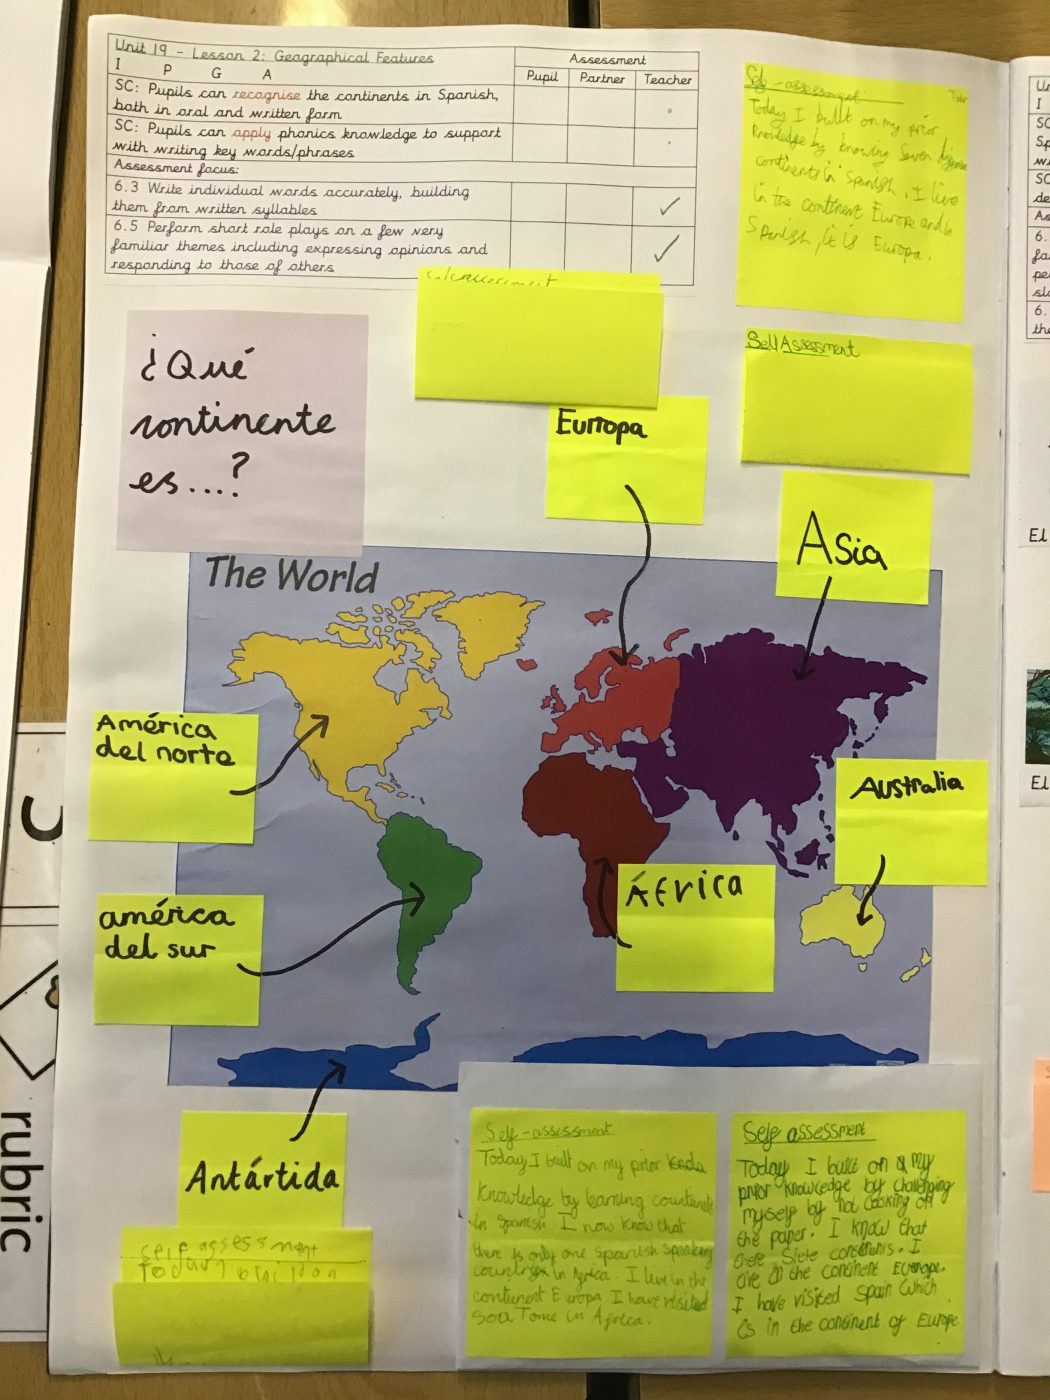 Unit 19 - Lesson 2: Geographical Features
I P G A
Assessment
Pupil Partner Teacher
SC: Pupils can recognise the continents in Spanish,
both in oral and written form
SC: Pupils can apply phonics knowledge to support
with writing key words/phrases
Assessment focus:
6.3 Write individual words accurately, building
them from written syllables
6.5 Perform short role plays on a few very
familiar themes including expressing opinions and
responding to those of others
Self-assessment
Today I built on my prior
knowledge by knowing Seven
continents in Spanish. I live
in the continent Europe and in
Spanish, it is Europa.
Self Assessment
¿Qué
continente
es...?
Europa
Asia
The World
América
del norte
Australia
África
américa
del sur
Antártida
self assessment
Self-assessment
Today I built on my prior
Knowledge by learning
in Spanish. I now know that
there is only one Spanish speaking
in Africa. I live in the
continent Europa. I have visited
Sao Tome in Africa.
Self assessment
Today I built on my
prior knowledge by challenging
myself by not looking at
the paper. I know that
Siete continents. I
the continent
I have visited Spain which
is in the continent of Europe
rubric
El
El